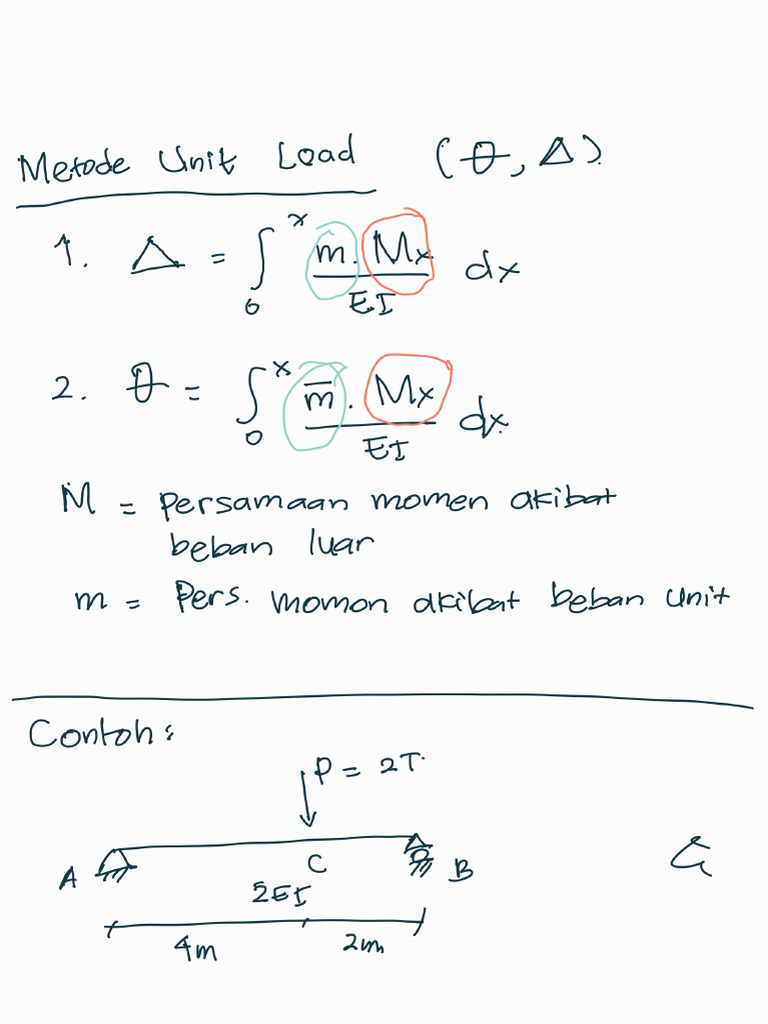 Metode Unit Load (θ, Δ)
1. Δ = ∫₀ˣ m . Mx / EI dx
2. θ = ∫₀ˣ m̅ . Mx / EI dx
M = Persamaan momen akibat
beban luar
m = Pers. momon akibat beban unit
Contoh :
P = 2T.
A C B
2EI
4m 2m